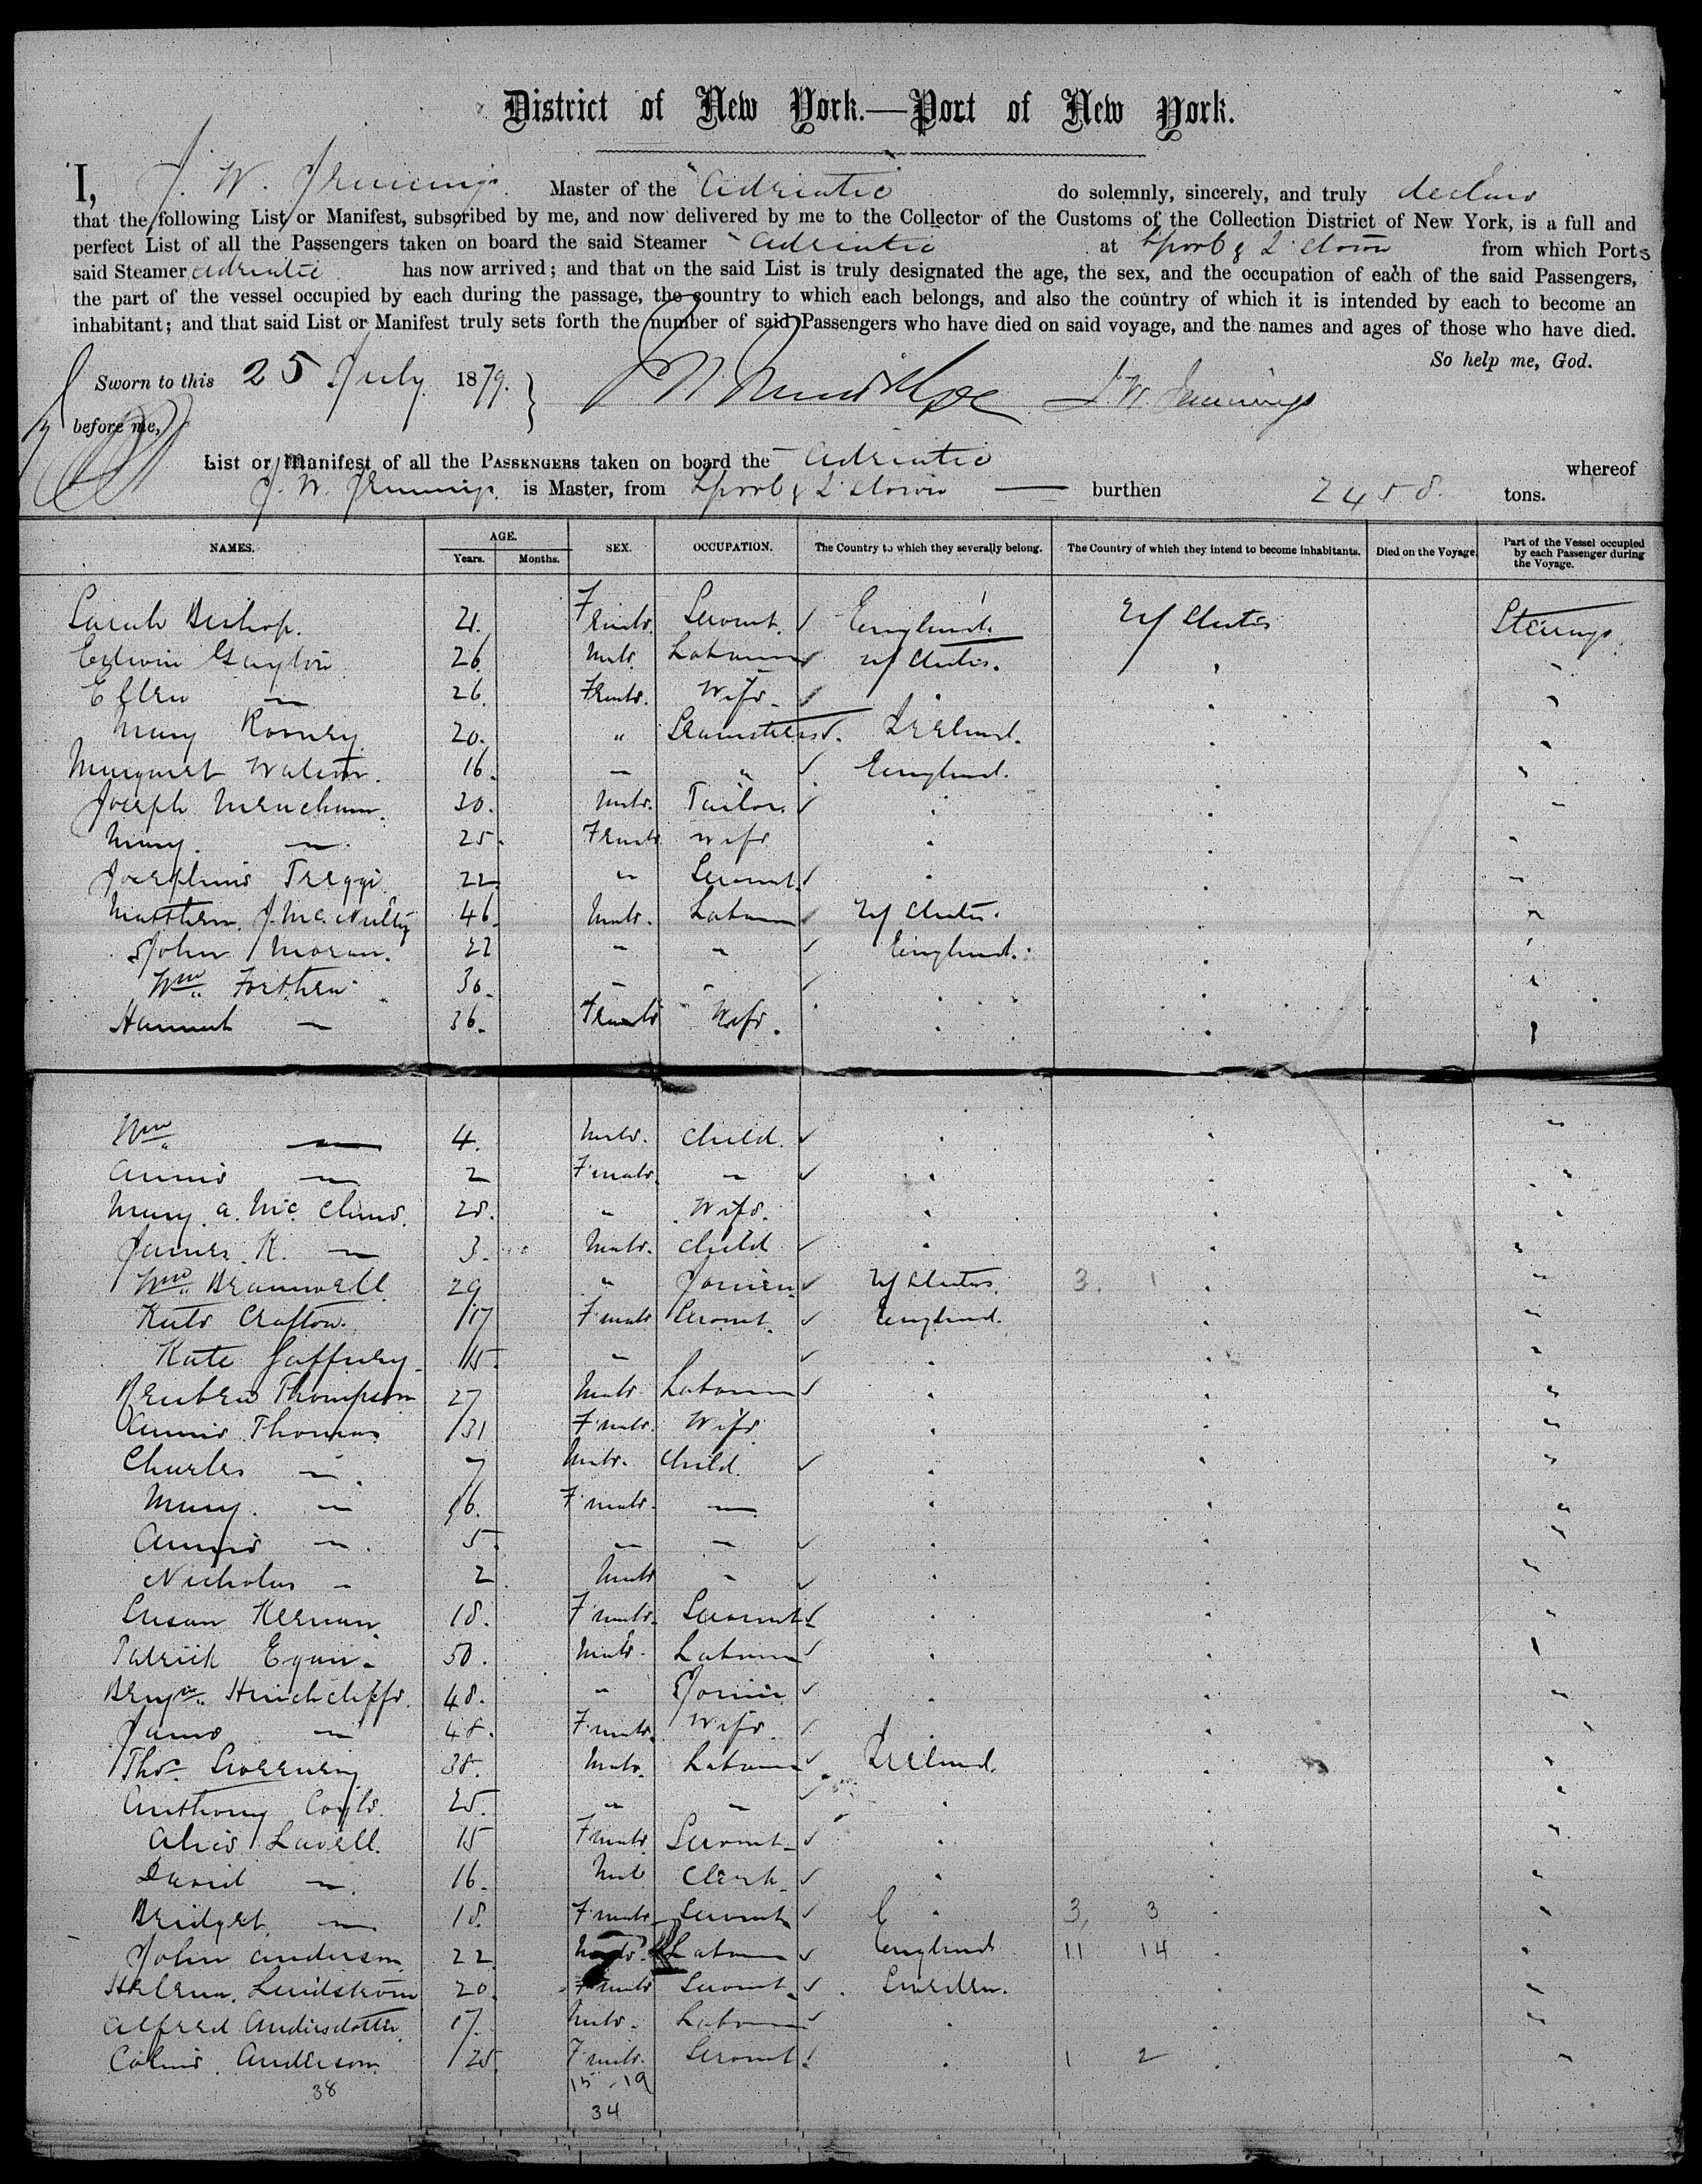 District of New York.—Port of New York.
I, J. W. Jennings. Master of the "Adriatic do solemnly, sincerely, and truly declare
that the following List or Manifest, subscribed by me, and now delivered by me to the Collector of the Customs of the Collection District of New York, is a full and
perfect List of all the Passengers taken on board the said Steamer "Adriatic" at Lpool & Q'town from which Ports
said Steamer Adriatic has now arrived; and that on the said List is truly designated the age, the sex, and the occupation of each of the said Passengers,
the part of the vessel occupied by each during the passage, the country to which each belongs, and also the country of which it is intended by each to become an
inhabitant; and that said List or Manifest truly sets forth the number of said Passengers who have died on said voyage, and the names and ages of those who have died.
So help me, God.
Sworn to this 25 July 1879. J. W. Jennings
before me,
List or Manifest of all the PASSENGERS taken on board the Adriatic whereof
J. W. Jennings. is Master, from Lpool & Q'town — burthen 2458. tons.
NAMES. AGE. Years. Months. SEX. OCCUPATION. The Country to which they severally belong. The Country of which they intend to become inhabitants. Died on the Voyage. Part of the Vessel occupied by each Passenger during the Voyage.
Sarah Bishop. 21. Female. Servant. England. U States Steerage
Edwin Gaylor 26. Male. Labourer U States. "
Ellen — 26. Female. Wife. "
Mary Rooney. 20. " Seamstress. Ireland. "
Margaret Watson. 16. " " England. "
Joseph Meacham. 30. Male. Tailor. " "
Mary. — 25. Female Wife " "
Josephine Treggi 22. " Servant. " "
Matthew J. McNulty 46. Male. Labourer U States. "
John Moran. 22 " " England. "
Wm. Forthen 30. " " " "
Hannah — 36. Female Wife. " "
Wm. — 4. Male. Child. " "
Annie — 2 Female. " " "
Mary. A. Mc. 28. " Wife. " "
James. K. — 3. Male. Child " "
Wm. Bramwell. 29 " Joiner U States. 3. 1 "
Kate Crafton. 17 Female Servant. England. "
Kate Gaffney. 15. " " "
Reuben Thompson 27 Male Labourer " "
Annie Thomas 31 Female. Wife " "
Charles — 7 Male. Child. " "
Mary. — 6. Female. — " "
Annie — 5. " " " "
Nicholas — 2 Male " " "
Susan Kernan. 18. Female. Servant " "
Patrick Egan. 50. Male. Labourer " "
Benjn. Hinchcliffe. 48. " Joiner " "
Jane — 48. Female. Wife. " "
Thos. Sweeney 38. Male. Labourer Ireland. "
Anthony Coyle. 25. " " " "
Alice Lavell. 15 Female Servant. " "
David — 16. Male Clerk. " "
Bridget — 18. Female Servant " 3, 3 "
John Anderson 22 Male. Labourer England 11 14 "
Helena. Lindstrom 20. Female Servant. Sweden. "
Alfred Andersdotter. 17. Male. Labourer " "
Anderson 25. Female. Servant. " 1 2 "
38 15 19
34